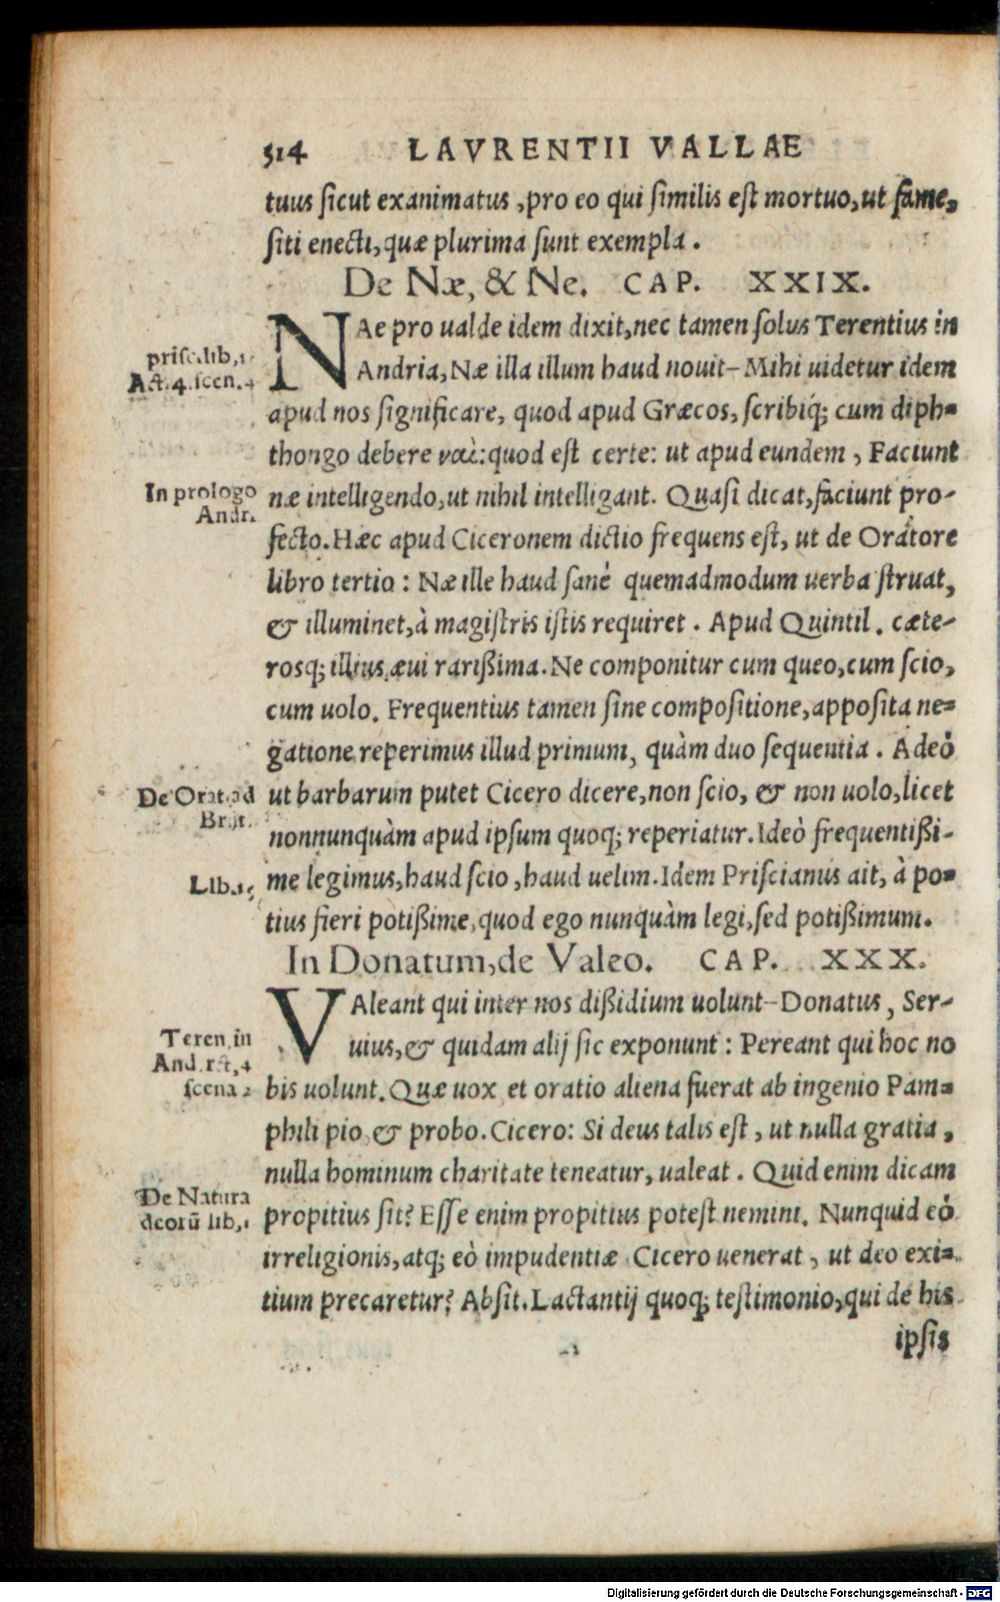 514 LAVRENTII VALLAE
tuus ſicut exanimatus, pro eo qui ſimilis eſt mortuo, ut fame,
ſiti enecti, quæ plurima ſunt exempla.
De Næ, & Ne. CAP. XXIX.
NAe pro ualde idem dixit, nec tamen ſolus Terentius in
priſc. lib. 1
Andria, Næ illa illum haud nouit– Mihi uidetur idem
Act. 4. ſcen. 4
apud nos ſignificare, quod apud Græcos, ſcribiq; cum diph=
thongo debere ναὶ: quod eſt certe: ut apud eundem, Faciunt
In prologo
næ intelligendo, ut nihil intelligant. Quaſi dicat, faciunt pro-
Andr.
fecto. Hæc apud Ciceronem dictio frequens eſt, ut de Oratore
libro tertio: Næ ille haud ſanè quemadmodum uerba ſtruat,
& illuminet, à magiſtris iſtis requiret. Apud Quintil. cæte-
rosq; illius æui rarißima. Ne componitur cum queo, cum ſcio,
cum uolo. Frequentius tamen ſine compoſitione, appoſita ne=
gatione reperimus illud primum, quàm duo ſequentia. Adeò
De Orat. ad
ut barbarum putet Cicero dicere, non ſcio, & non uolo, licet
Brut.
nonnunquàm apud ipſum quoq; reperiatur. Ideò frequentißi-
Lib. 15
me legimus, haud ſcio, haud uelim. Idem Priſcianus ait, à po=
tius fieri potißime, quod ego nunquàm legi, ſed potißimum.
In Donatum, de Valeo. CAP. XXX.
VAleant qui inter nos dißidium uolunt– Donatus, Ser-
Teren. in
uius, & quidam alij ſic exponunt: Pereant qui hoc no
And. act. 4
ſcena 2
bis uolunt. Quæ uox et oratio aliena fuerat ab ingenio Pam=
phili pio & probo. Cicero: Si deus talis eſt, ut nulla gratia,
nulla hominum charitate teneatur, ualeat. Quid enim dicam
De Natura
propitius ſit? Eſſe enim propitius poteſt nemini. Nunquid eò
deorū lib. 1
irreligionis, atq; eò impudentiæ Cicero uenerat, ut deo exi=
tium precaretur? Abſit. Lactantij quoq; teſtimonio, qui de his
ipſis
Digitalisierung gefördert durch die Deutsche Forschungsgemeinschaft - DFG